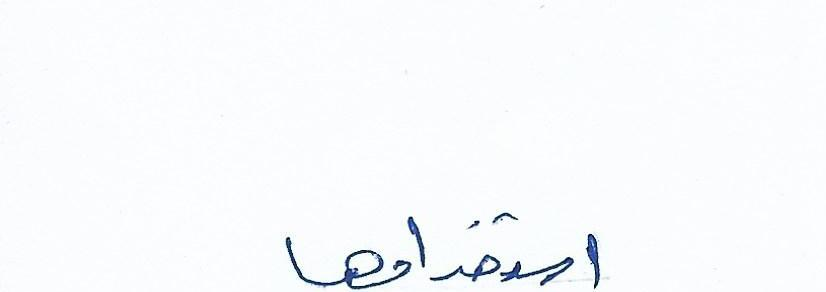 استخدامها